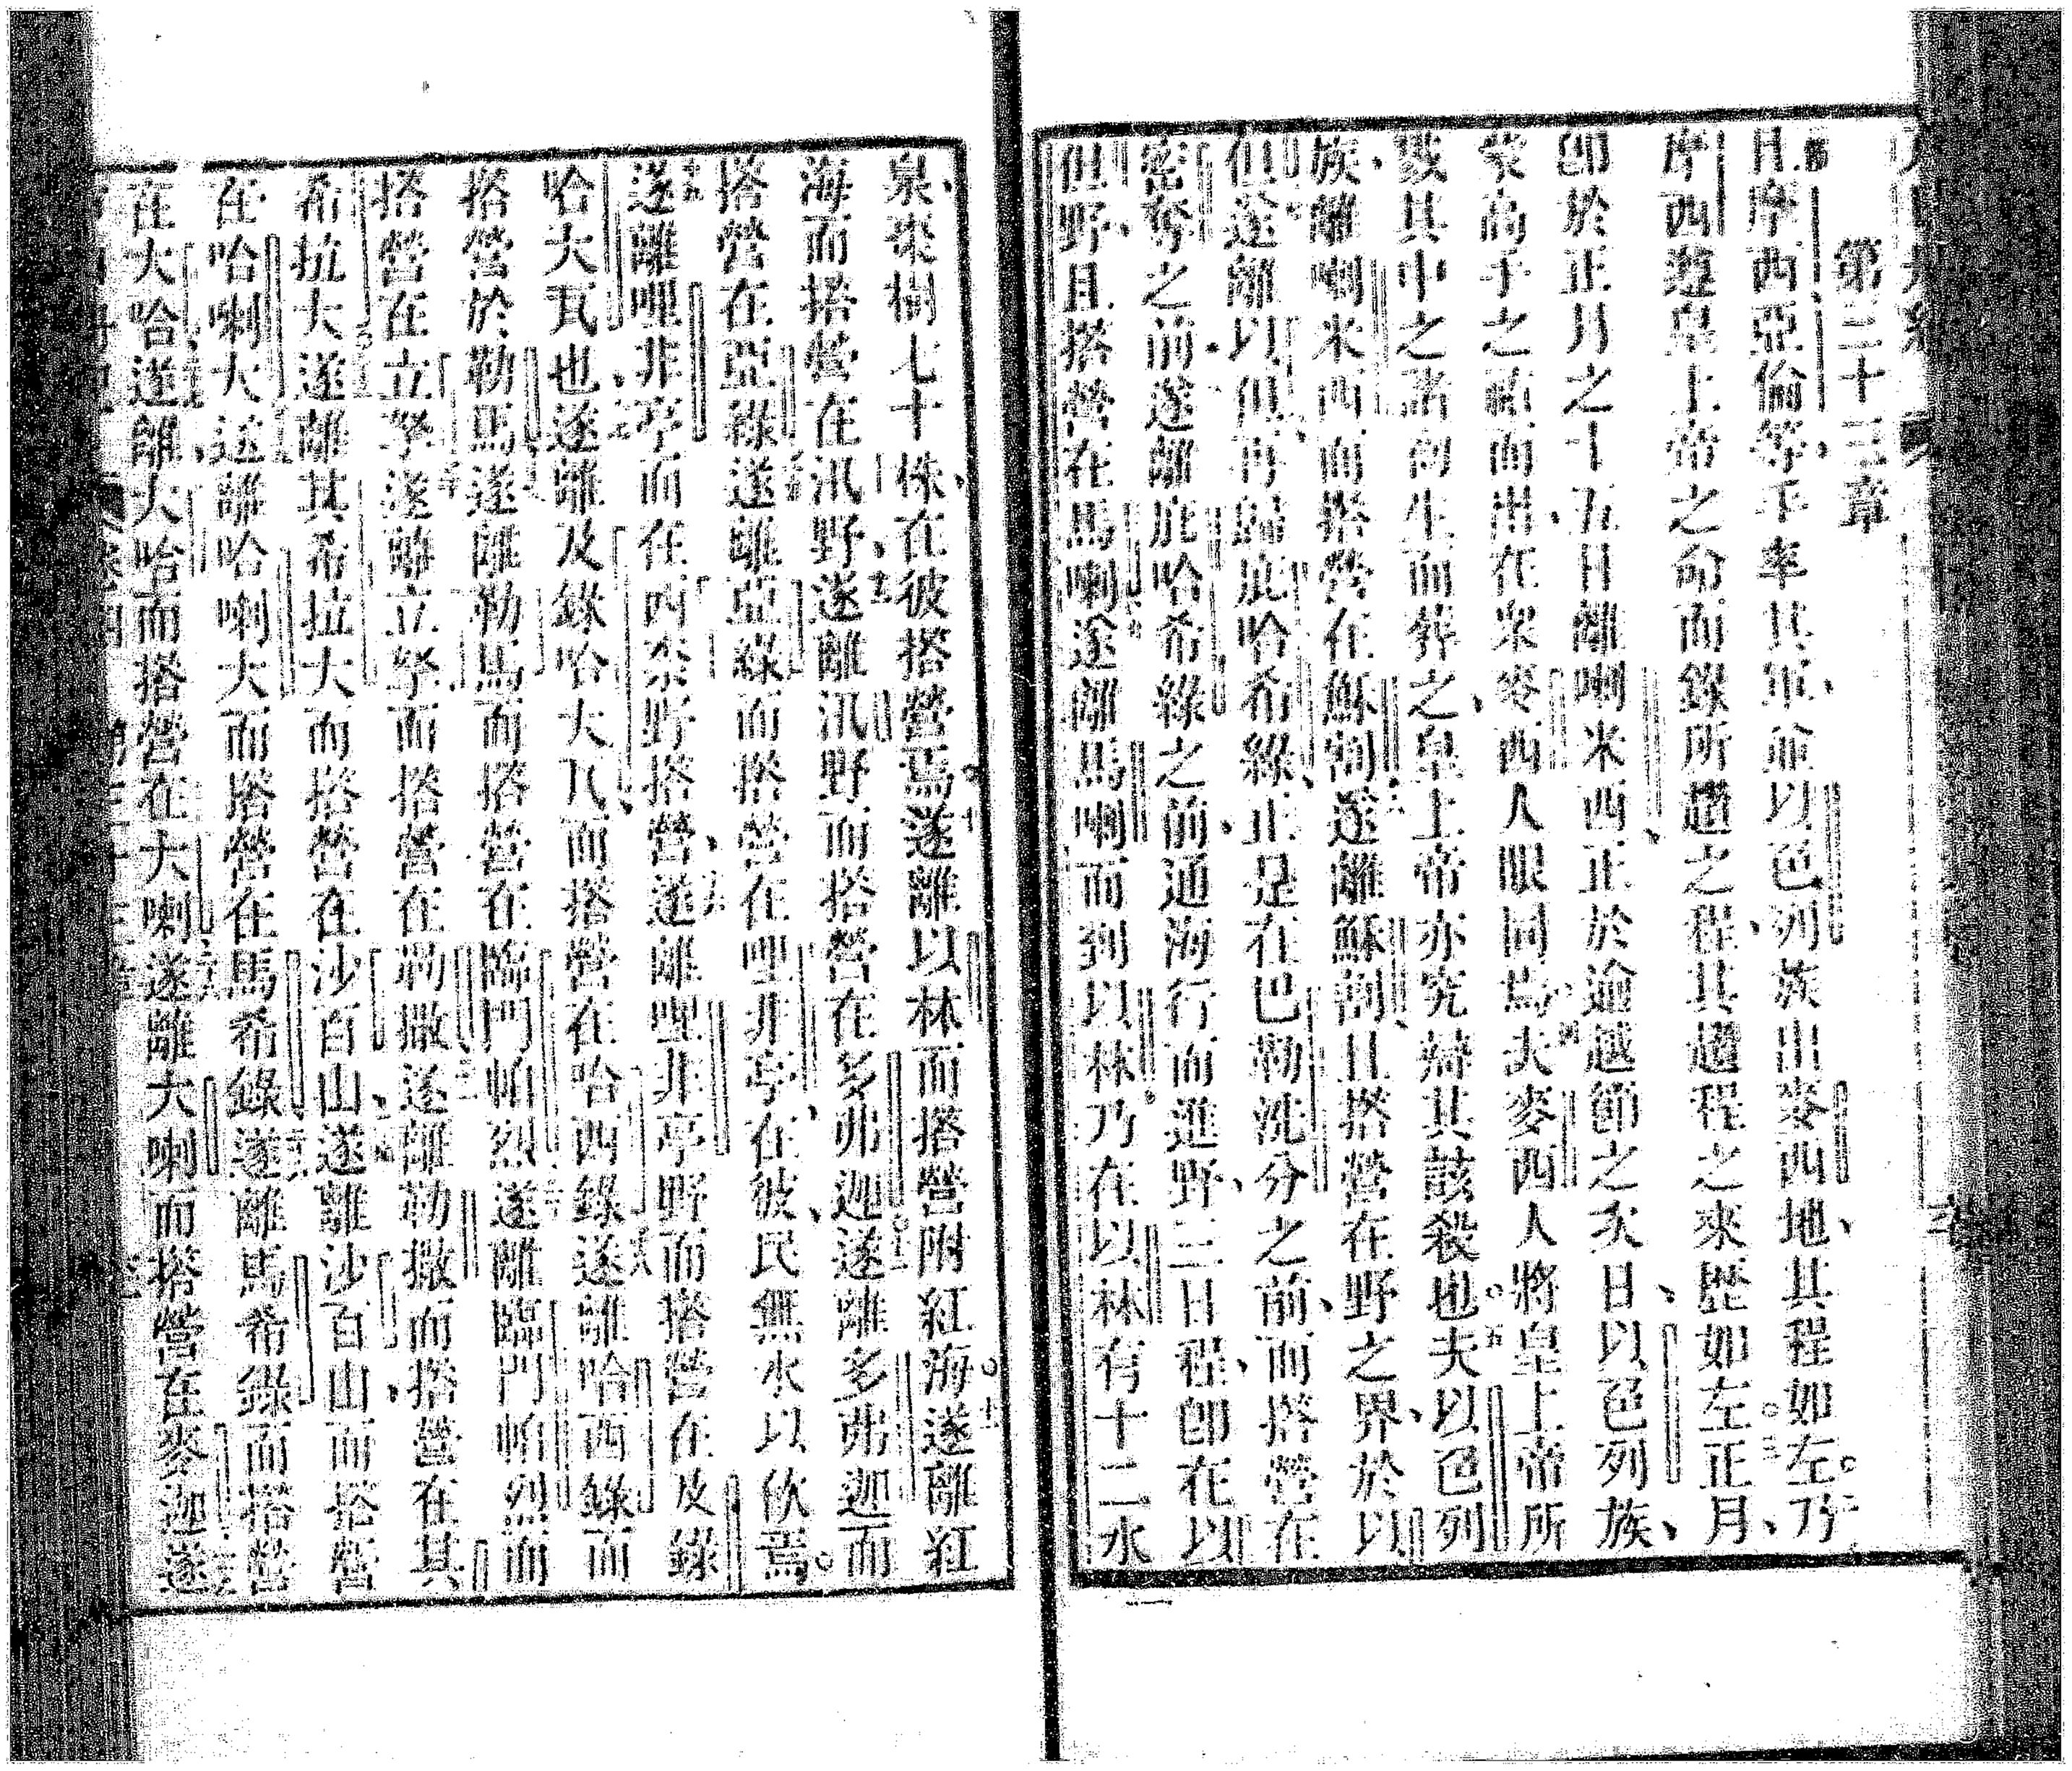 第三十三章
且摩西亞倫等手率其軍、並以色列族出麥西地、其程如左。二乃
摩西遵皇上帝之命而錄所趲之程、其趲程之來歷如左。三正月、
卽於正月之十五日離喇米西、正於逾越節之次日、以色列族、
蒙高手之祐而出、在衆麥西人眼同焉。四夫麥西人將皇上帝所
戮其中之諸首生而葬之、皇上帝亦究辯其該殺也。五夫以色列
族、離喇米西而搭營在穌割。六遂離穌割、且搭營在野之界、於以
但。七遂離以但、再歸庇哈希綠、正是在巴勒洗分之前、而搭營在
密奪之前。遂離庇哈希綠之前、通海行而進野、三日程、卽在以
但野、且搭營在馬喇。九遂離馬喇而到以林、乃在以林有十二水
泉、棗樹七十株、在彼搭營焉。十遂離以林而搭營附紅海。十一遂離紅
海而搭營在汛野、十二遂離汛野而搭營在多弗迦。十三遂離多弗迦而
搭營在亞綠。十四遂離亞綠而搭營在哩非亭、在彼民無水以飲焉。
十五遂離哩非亭而在西奈野搭營、十六遂離哩非亭野而搭營在及錄
哈大瓦也、十七遂離及錄哈大瓦、而搭營在哈西錄。十八遂離哈西錄而
搭營於勒馬。十九遂離勒馬而搭營在臨門帕烈。二十遂離臨門帕烈而
搭營在立拏。遂離立拏而搭營在勒撒。遂離勒撒而搭營在其
希拉大。遂離其希拉大而搭營在沙百山。二四遂離沙百山、而搭營
在哈喇大。遂離哈喇大而搭營在馬希錄。遂離馬希錄而搭營
在大哈。遂離大哈而搭營在大喇。遂離大喇而搭營在麥迦。遂